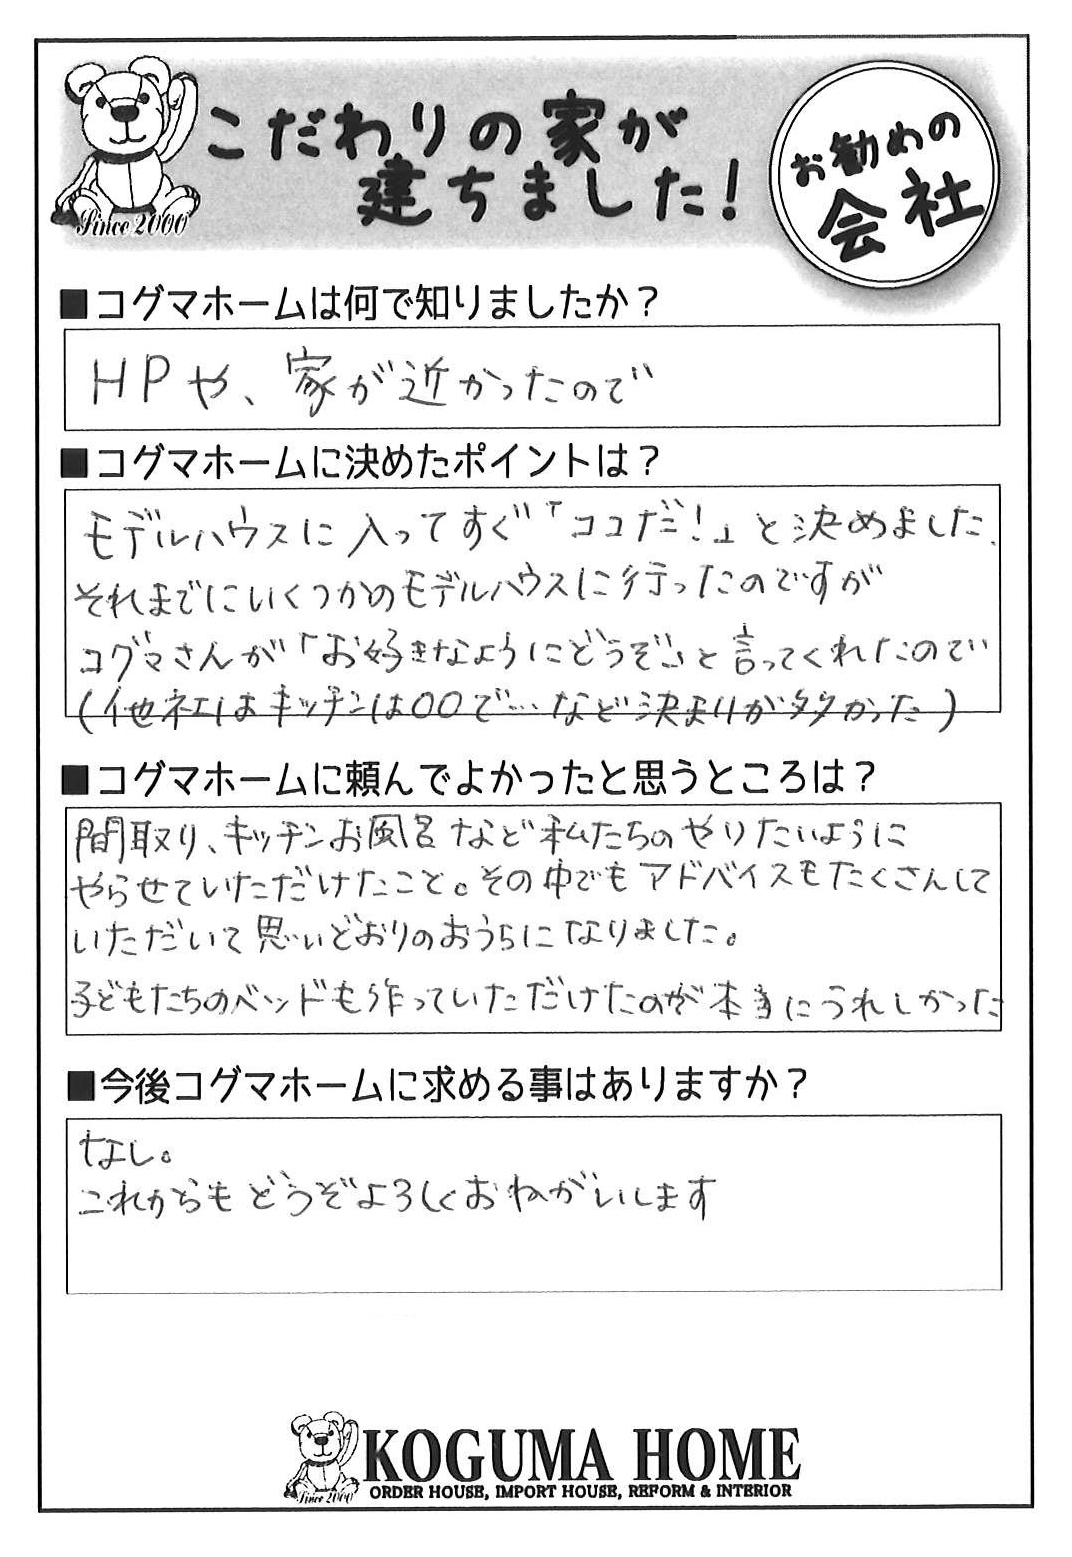 こだわりの家が
建ちました!
お勧めの
会社
Since 2000
■コグマホームは何で知りましたか？
HPや、家が近かったので
■コグマホームに決めたポイントは？
モデルハウスに入ってすぐ「ココだ!」と決めました.
それまでにいくつかのモデルハウスに行ったのですが
コグマさんが「お好きなようにどうぞ」と言ってくれたので
(他社はキッチンは〇〇で…など決まりが多かった)
■コグマホームに頼んでよかったと思うところは？
間取り、キッチンお風呂など私たちのやりたいように
やらせていただけたこと。その中でもアドバイスもたくさんして
いただいて思いどおりのおうちになりました。
子どもたちのベッドも作っていただけたのが本当にうれしかった
■今後コグマホームに求める事はありますか？
なし。
これからもどうぞよろしくおねがいします
Since 2000
KOGUMA HOME
ORDER HOUSE, IMPORT HOUSE, REFORM & INTERIOR